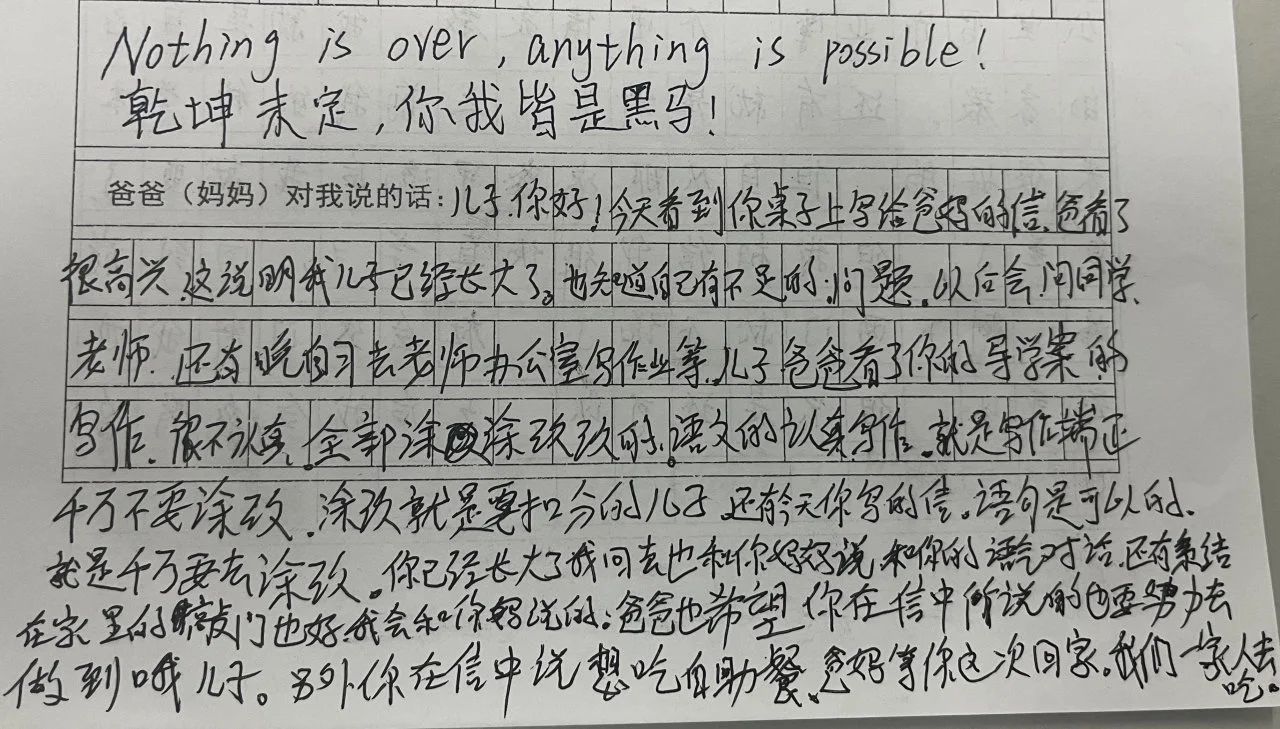 Nothing is over, anything is possible!
乾坤未定,你我皆是黑马!
爸爸(妈妈)对我说的话:儿子.你好!今天看到你桌子上写给爸妈的信.爸看了
很高兴.这说明我儿子已经长大了。也知道自己有不足的问题.以后会问同学、
老师.还有晚自习去老师办公室写作业等.儿子爸爸看了你的导学案的
写作.很不认真.全部涂涂改改的。语文的认真写作.就是写作端正
千万不要涂改.涂改就是要扣分的儿子.还有今天你写的信。语句是可以的.
就是千万要去涂改。你已经长大了我回去也和你妈好好说.和你的语气对话.还有
在家里的敲门也好.我会和你妈说的;爸爸也希望你在信中所说的也要努力去
做到哦儿子。另外你在信中说想吃自助餐.爸妈等你这次回家.我们一家人去
吃。